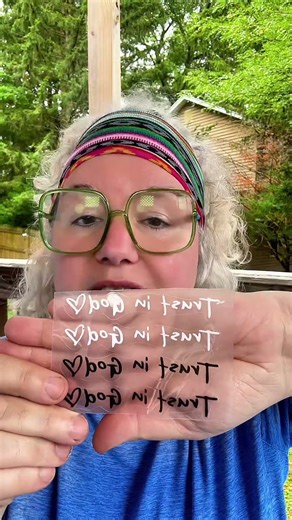 Trust in God♡
Trust in God♡
Trust in God♡
Trust in God♡